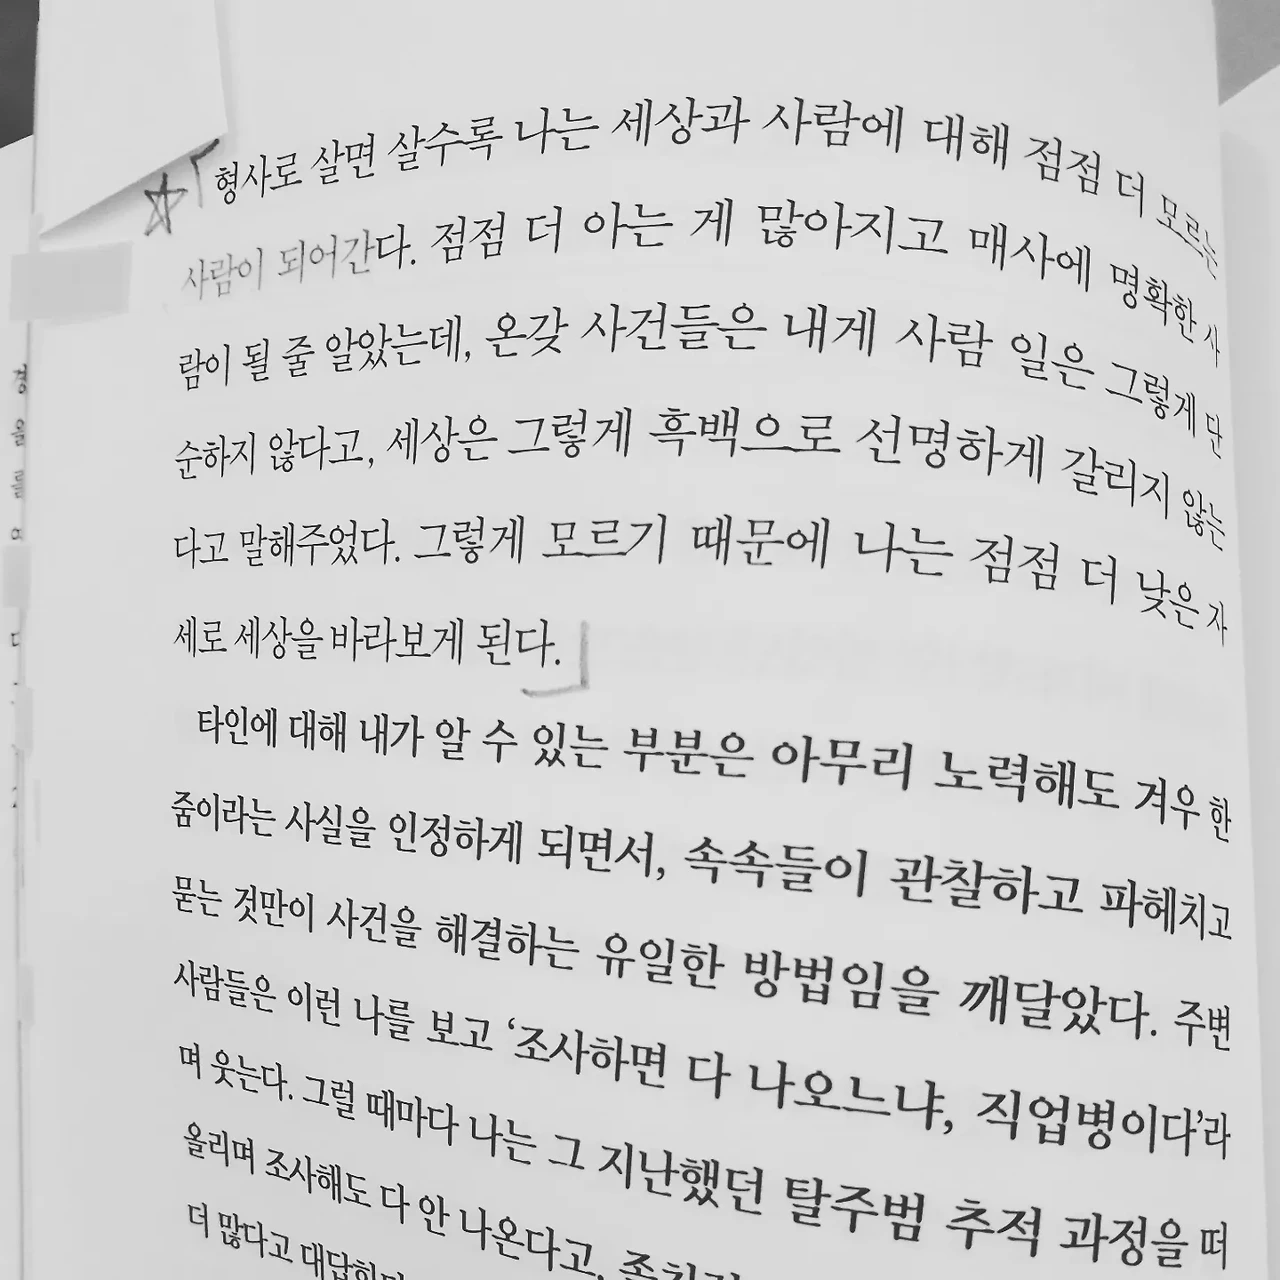 형사로 살면 살수록 나는 세상과 사람에 대해 점점 더 모르는
사람이 되어간다. 점점 더 아는 게 많아지고 매사에 명확한 사
람이 될 줄 알았는데, 온갖 사건들은 내게 사람 일은 그렇게 단
순하지 않다고, 세상은 그렇게 흑백으로 선명하게 갈리지 않는
다고 말해주었다. 그렇게 모르기 때문에 나는 점점 더 낮은 자
세로 세상을 바라보게 된다.
타인에 대해 내가 알 수 있는 부분은 아무리 노력해도 겨우 한
줌이라는 사실을 인정하게 되면서, 속속들이 관찰하고 파헤치고
묻는 것만이 사건을 해결하는 유일한 방법임을 깨달았다. 주변
사람들은 이런 나를 보고 ‘조사하면 다 나오느냐, 직업병이다’라
며 웃는다. 그럴 때마다 나는 그 지난했던 탈주범 추적 과정을 떠
올리며 조사해도 다 안 나온다고,
더 많다고